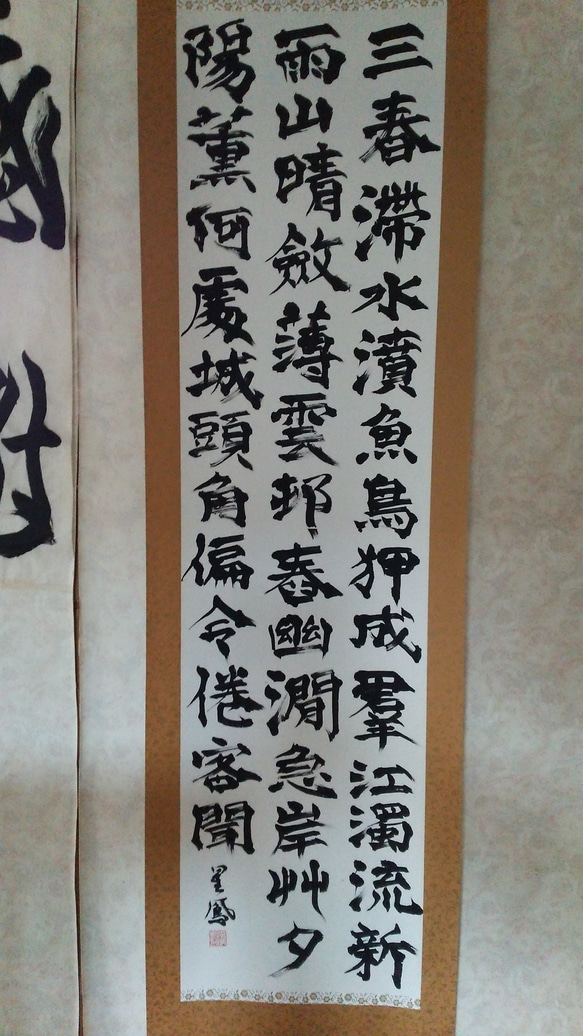 三春滯水濆魚鳥狎成羣江濁流新
雨山晴斂薄雲邨舂幽澗急岸艸夕
陽薰何處城頭角偏令倦客聞
星鳳